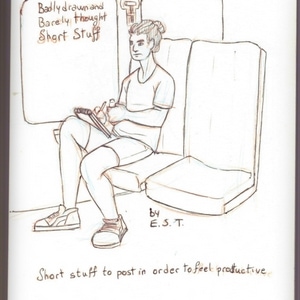 Badly drawn and
Barely thought
Short Stuff
by
E.S.T.
Short stuff to post in order to feel productive